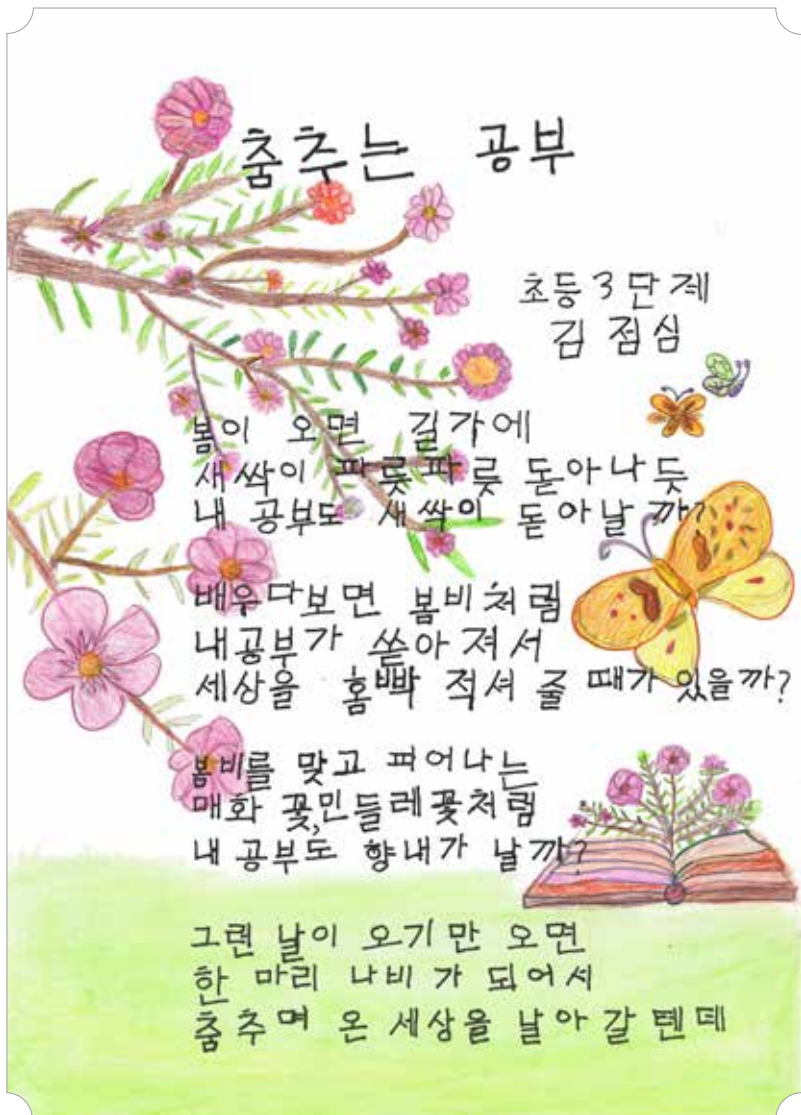 춤추는 공부
초등 3단계
김점심
봄이 오면 길가에
새싹이 파릇파릇 돋아나듯
내 공부도 새싹이 돋아날까?
배우다보면 봄비처럼
내공부가 쏟아져서
세상을 흠뻑 적셔 줄 때가 있을까?
봄비를 맞고 피어나는
매화 꽃,민들레꽃처럼
내 공부도 향내가 날까?
그런 날이 오기만 오면
한 마리 나비가 되어서
춤추며 온 세상을 날아갈텐데